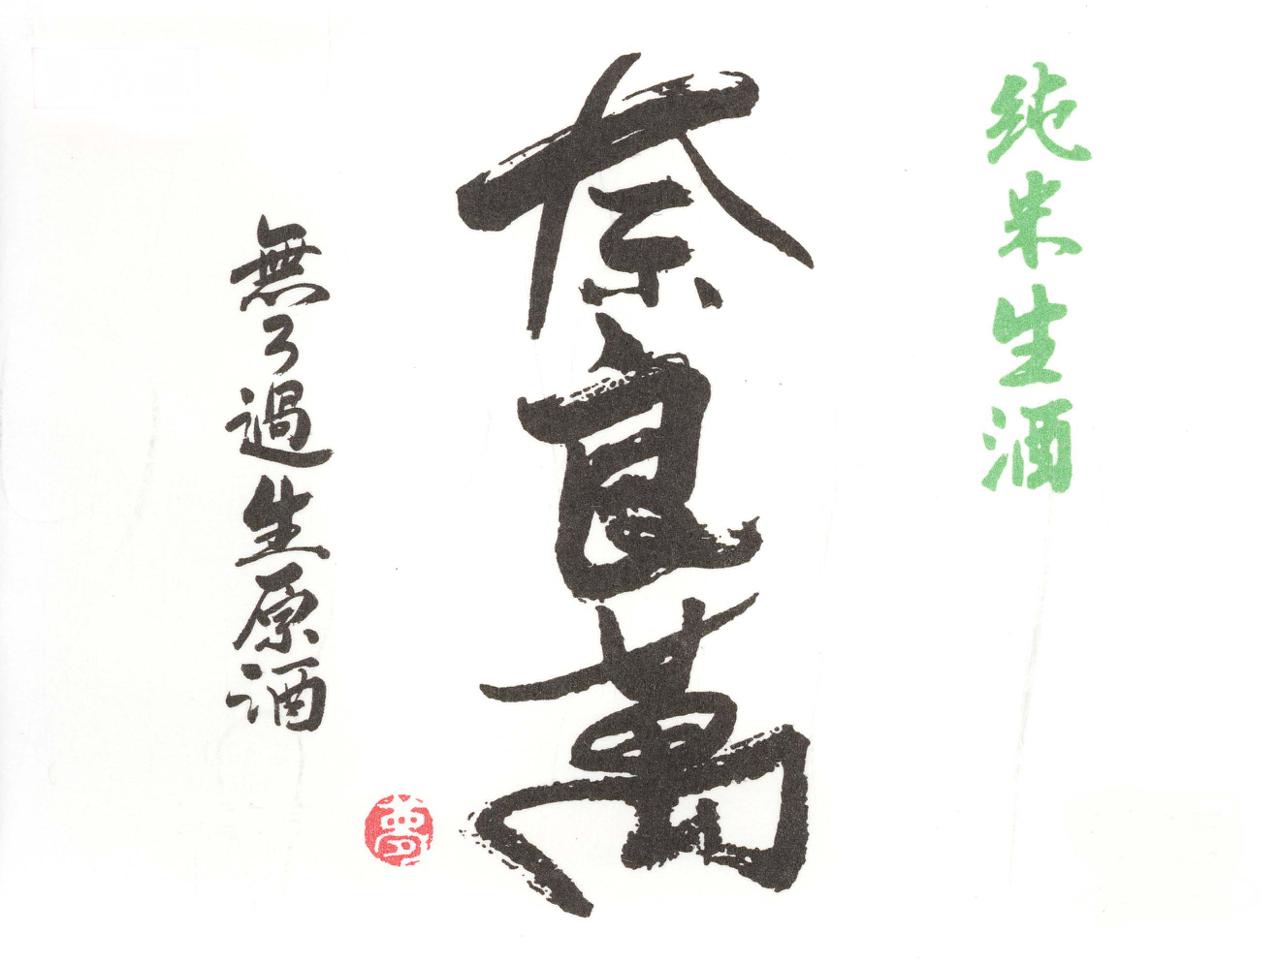 純米生酒
奈良萬
無ろ過生原酒
夢